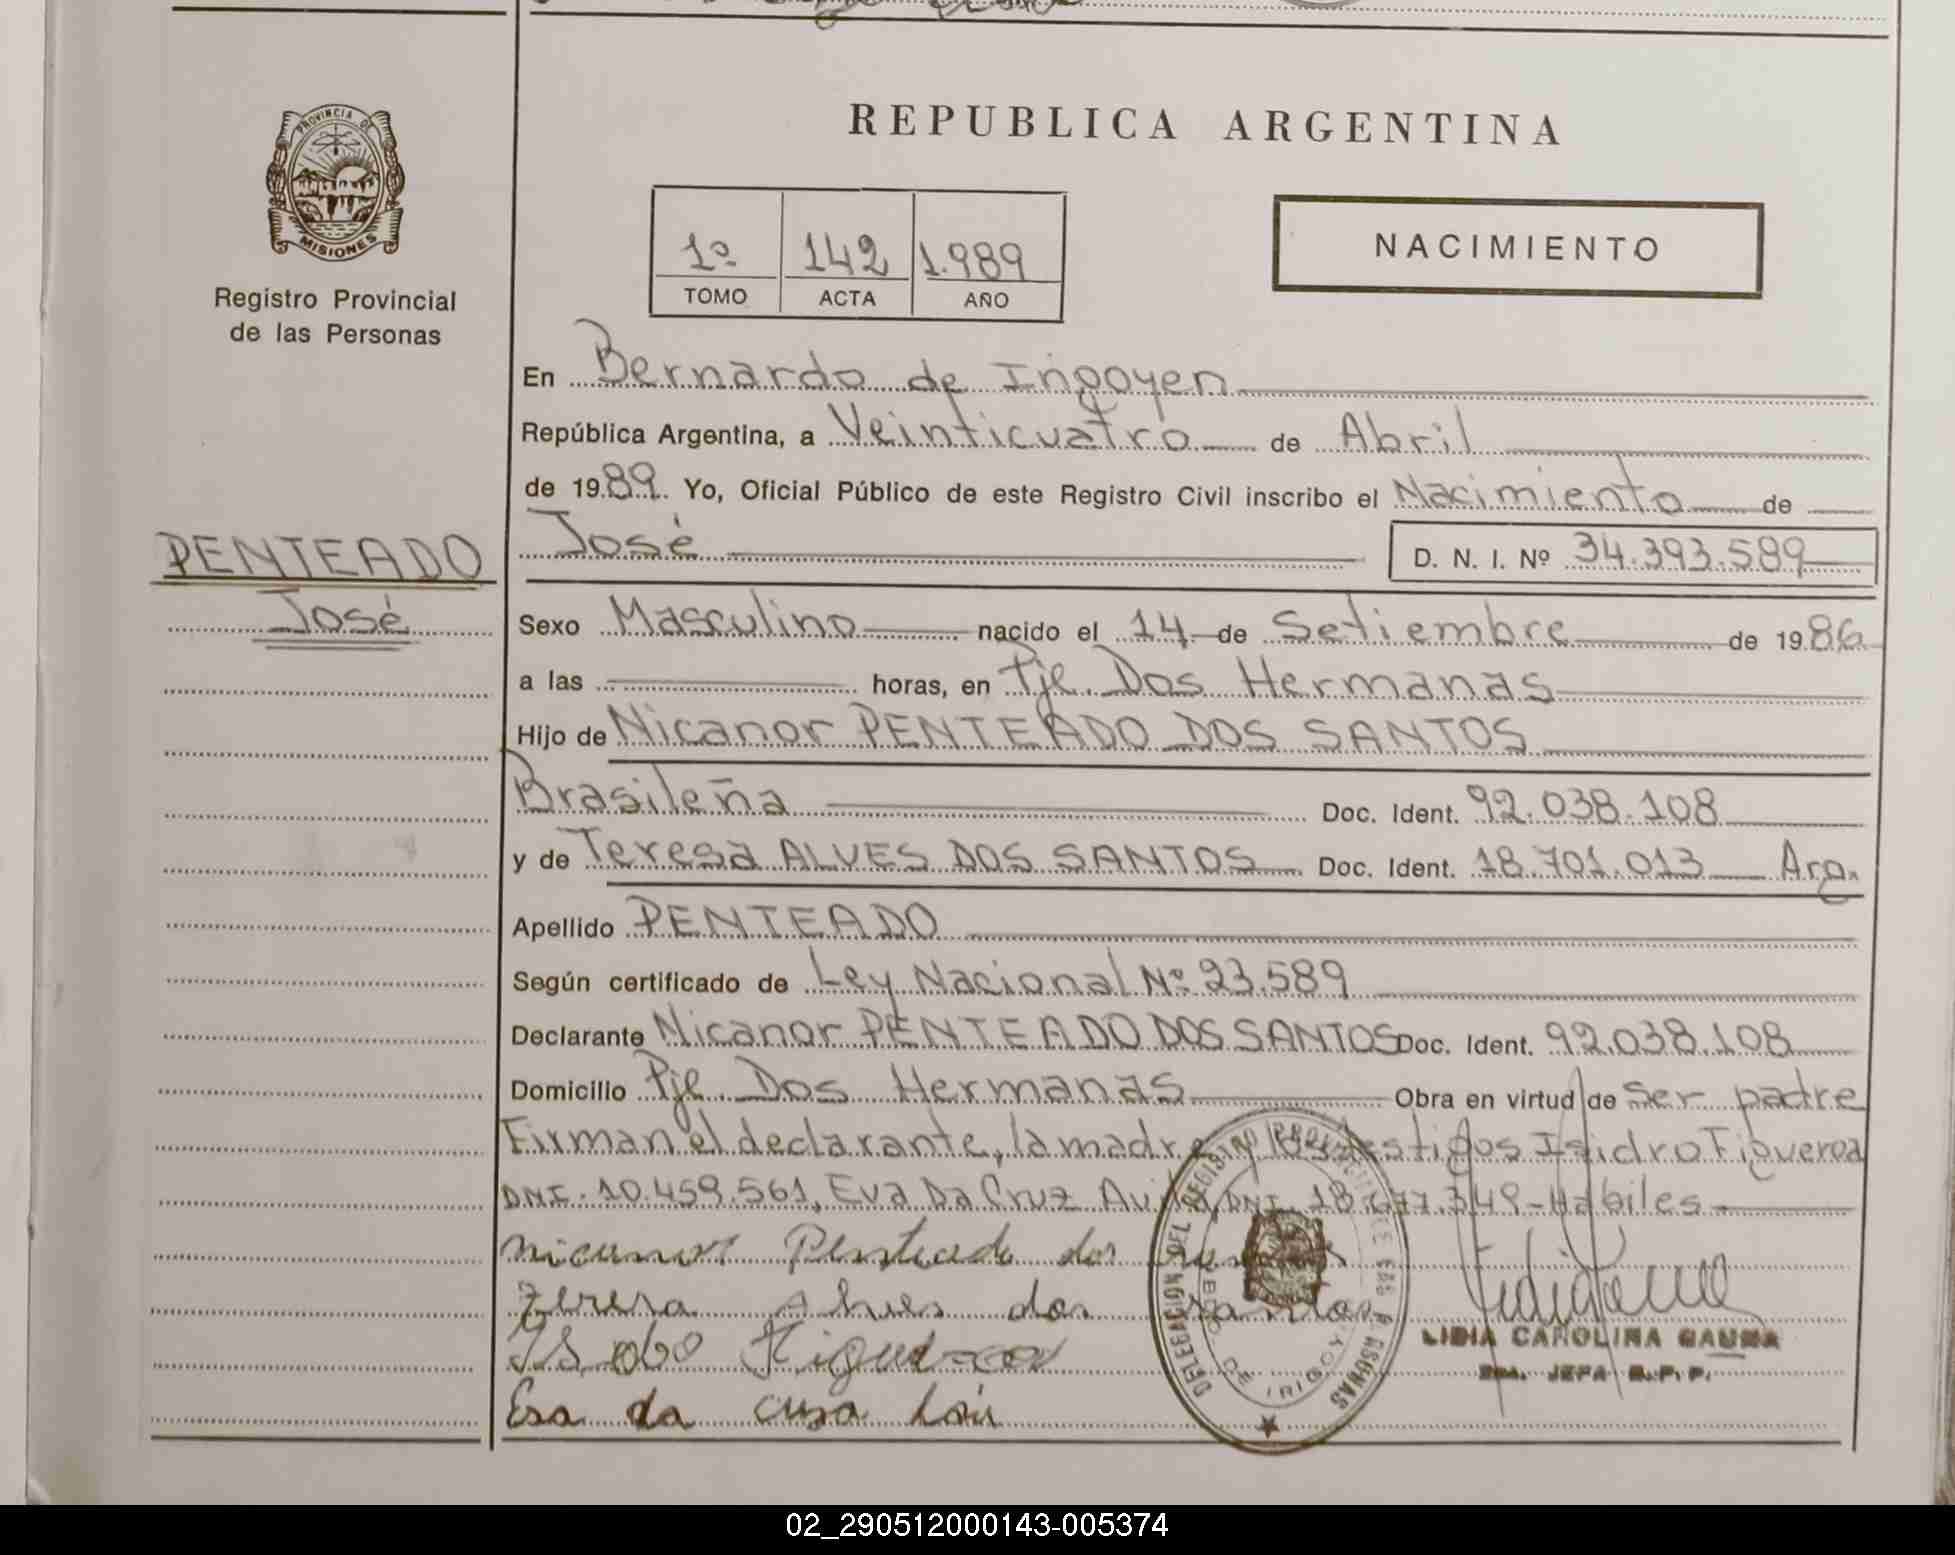 PROVINCIA DE
MISIONES
Registro Provincial
de las Personas
REPUBLICA ARGENTINA
1º 142 1.989
TOMO ACTA AÑO
NACIMIENTO
En Bernardo de Irigoyen
República Argentina, a Veinticuatro de Abril
de 1989. Yo, Oficial Público de este Registro Civil inscribo el Nacimiento de
José D. N. I. Nº 34.393.589
PENTEADO
José
Sexo Masculino nacido el 14 de Setiembre de 1986
a las horas, en Pje. Dos Hermanas
Hijo de Nicanor PENTEADO DOS SANTOS
Brasileña Doc. Ident. 92.038.108
y de Teresa ALVES DOS SANTOS Doc. Ident. 18.701.013 Arg.
Apellido PENTEADO
Según certificado de Ley Nacional Nº 23.589
Declarante Nicanor PENTEADO DOS SANTOS Doc. Ident. 92.038.108
Domicilio Pje. Dos Hermanas Obra en virtud de Ser padre
Firman el declarante, la madre los testigos Isidro Figueroa
DNI. 10.459.561, Eva Da Cruz DNI. 18.677.349-Habiles
Nicanor Penteado dos
Teresa Alves dos santos
Figueroa
da
DELEGACION DEL REGISTRO PROVINCIAL DE LAS PERSONAS
DE IRIGOYEN
LIDIA CAROLINA GAUNA
JEFA R.P.P.
02_290512000143-005374